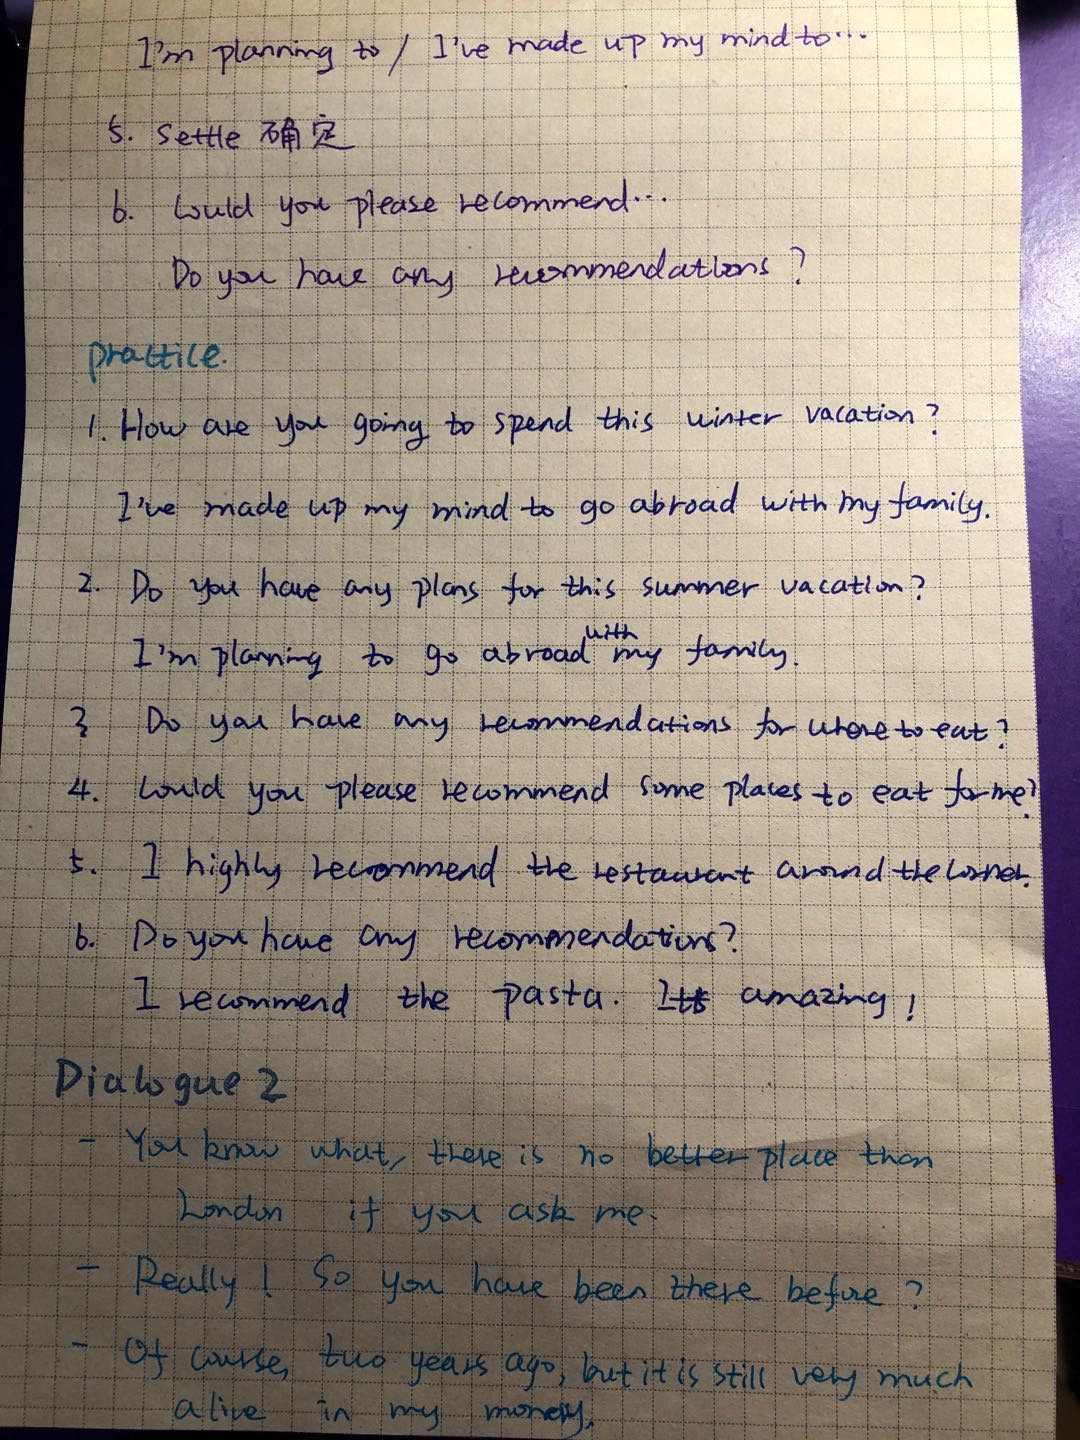 I'm planning to / I've made up my mind to...
5. settle 确定
6. Could you please recommend...
Do you have any recommendations?
practice.
1. How are you going to spend this winter vacation?
I've made up my mind to go abroad with my family.
2. Do you have any plans for this summer vacation?
I'm planning to go abroad with my family.
3 Do you have any recommendations for where to eat?
4. Could you please recommend some places to eat for me?
5. I highly recommend the restaurant around the corner.
6. Do you have any recommendations?
I recommend the pasta. It's amazing!
Dialogue 2
- You know what, there is no better place than
London if you ask me.
- Really! So you have been there before?
- Of course, two years ago, but it is still very much
alive in my